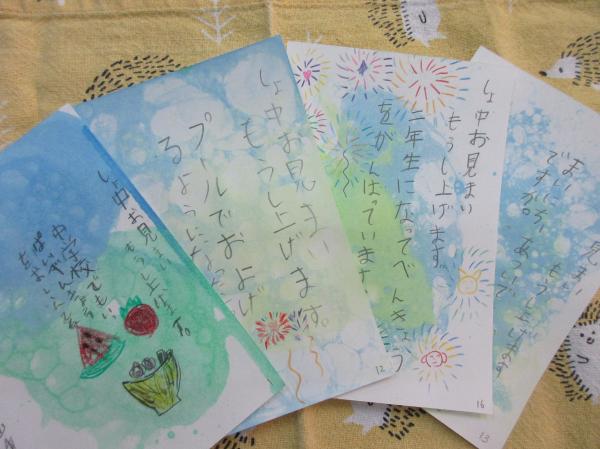 しょ中お見まい
もうし上げます。
中学校でもい
しょ中お見まい
もうし上げます。
プールでおよげ
るようになっ
12
しょ中お見まい
もうし上げます。
二年生になってべんきょう
をがんばっています
16
見まい
もうし上げます
まいにち
ですが。
13